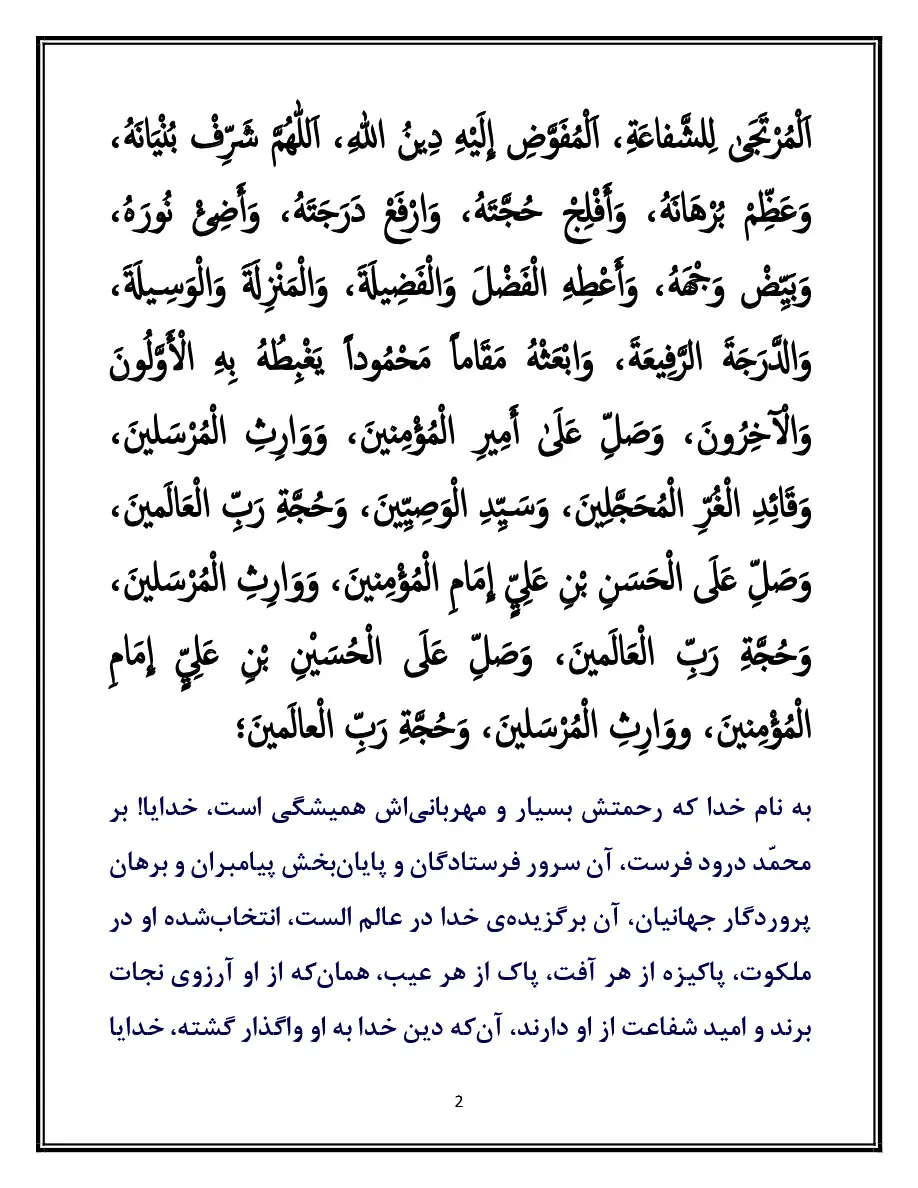 اَلْمُرْتَجَىٰ لِلشَّفاعَةِ، اَلْمُفَوَّضِ إِلَيْهِ دِينُ اللهِ، اَللّٰهُمَّ شَرِّفْ بُنْيَانَهُ،
وَعَظِّمْ بُرْهَانَهُ، وَأَفْلِجْ حُجَّتَهُ، وَارْفَعْ دَرَجَتَهُ، وَأَضِئْ نُورَهُ،
وَبَيِّضْ وَجْهَهُ، وَأَعْطِهِ الْفَضْلَ وَالْفَضِيلَةَ، وَالْمَنْزِلَةَ وَالْوَسِيلَةَ،
وَالدَّرَجَةَ الرَّفِيعَةَ، وَابْعَثْهُ مَقَاماً مَحْمُوداً يَغْبِطُهُ بِهِ الْأَوَّلُونَ
وَالْآخِرُونَ، وَصَلِّ عَلَىٰ أَمِيرِ الْمُؤْمِنينَ، وَوَارِثِ الْمُرْسَلينَ،
وَقَائِدِ الْغُرِّ الْمُحَجَّلِينَ، وَسَيِّدِ الْوَصِيِّينَ، وَحُجَّةِ رَبِّ الْعَالَمينَ،
وَصَلِّ عَلَى الْحَسَنِ بْنِ عَلِيٍّ إِمَامِ الْمُؤْمِنينَ، وَوَارِثِ الْمُرْسَلينَ،
وَحُجَّةِ رَبِّ الْعَالَمينَ، وَصَلِّ عَلَى الْحُسَيْنِ بْنِ عَلِيٍّ إِمَامِ
الْمُؤْمِنينَ، ووَارِثِ الْمُرْسَلينَ، وَحُجَّةِ رَبِّ الْعالَمينَ؛
به نام خدا که رحمتش بسیار و مهربانی‌اش همیشگی است، خدایا! بر
محمّد درود فرست، آن سرور فرستادگان و پایان‌بخش پیامبران و برهان
پروردگار جهانیان، آن برگزیده‌ی خدا در عالم الست، انتخاب‌شده او در
ملکوت، پاکیزه از هر آفت، پاک از هر عیب، همان‌که از او آرزوی نجات
برند و امید شفاعت از او دارند، آن‌که دین خدا به او واگذار گشته، خدایا
2